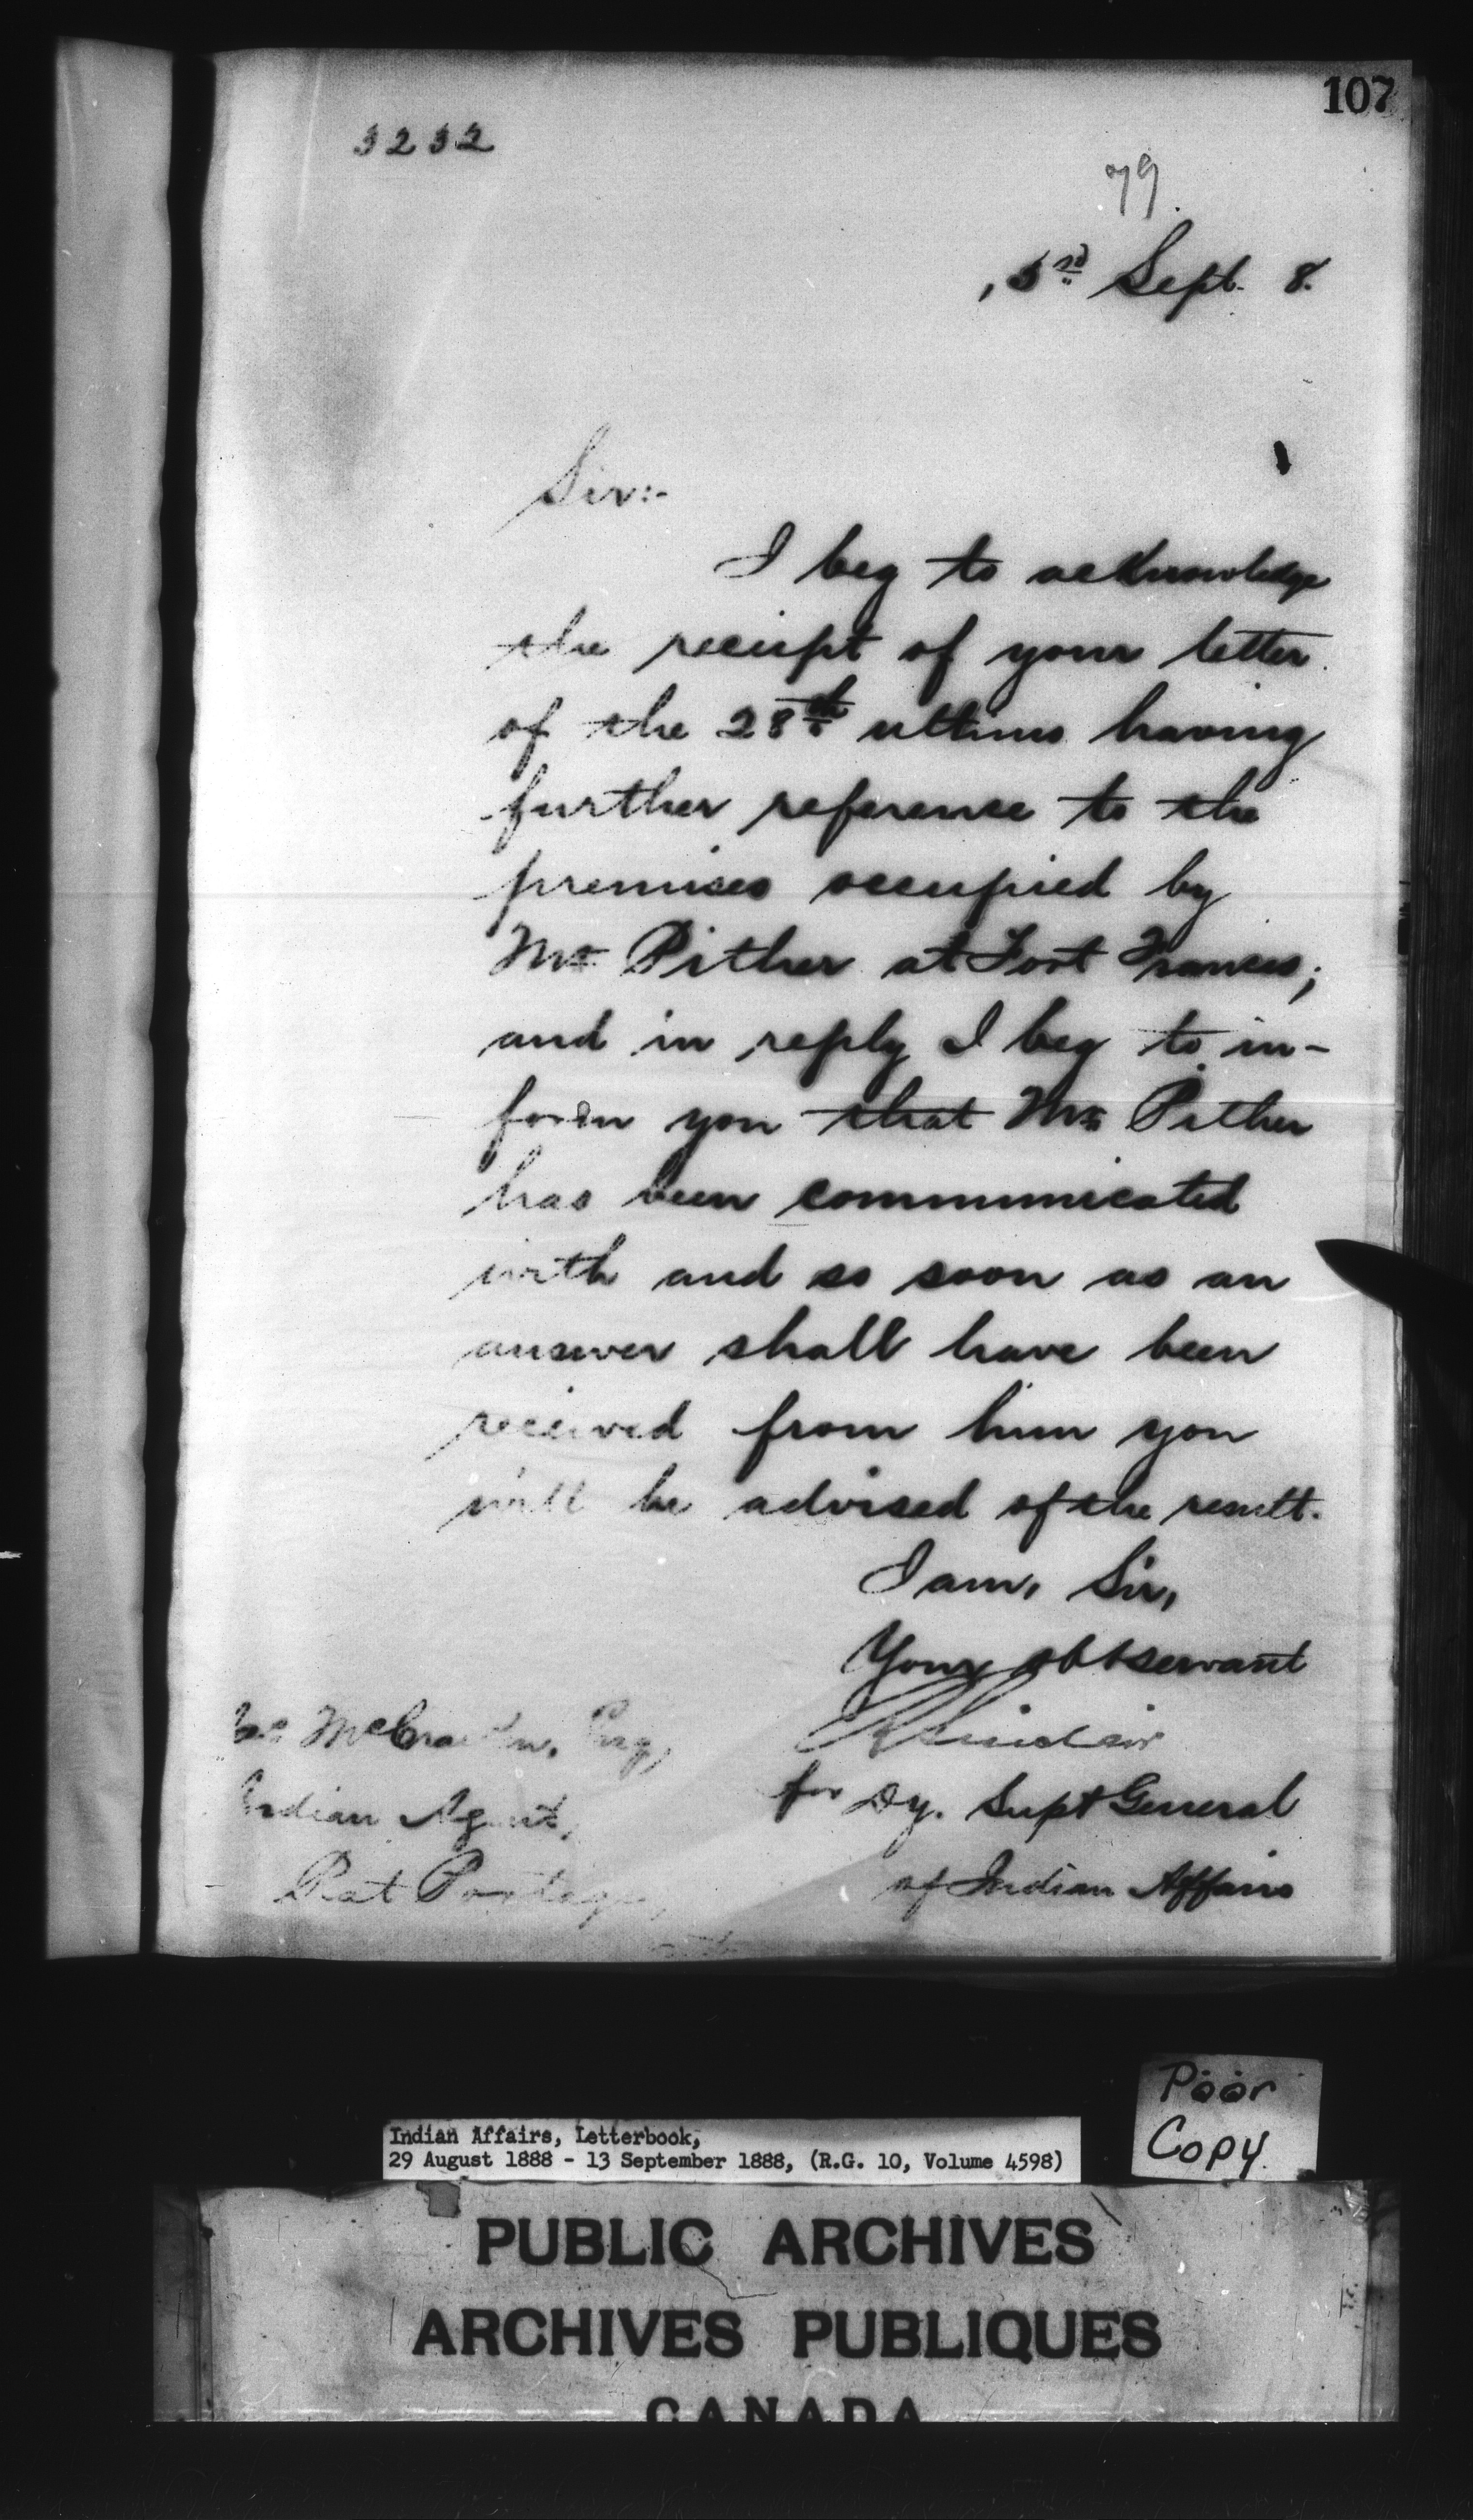 107
3232
79.
3rd Sept. 8.
Sir:-
I beg to acknowledge
the receipt of your letter
of the 28th ultimo having
further reference to the
premises occupied by
Mr Pither at Fort Frances;
and in reply I beg to in-
form you that Mr Pither
has been communicated
with and so soon as an
answer shall have been
received from him you
will be advised of the result.
I am, Sir,
Your obt servant
R Sinclair
for Dy. Supt General
of Indian Affairs
McCracken, Esq,
Indian Agent,
Rat Portage,
Poor
Copy.
Indian Affairs, Letterbook,
29 August 1888 - 13 September 1888, (R.G. 10, Volume 4598)
PUBLIC ARCHIVES
ARCHIVES PUBLIQUES
CANADA